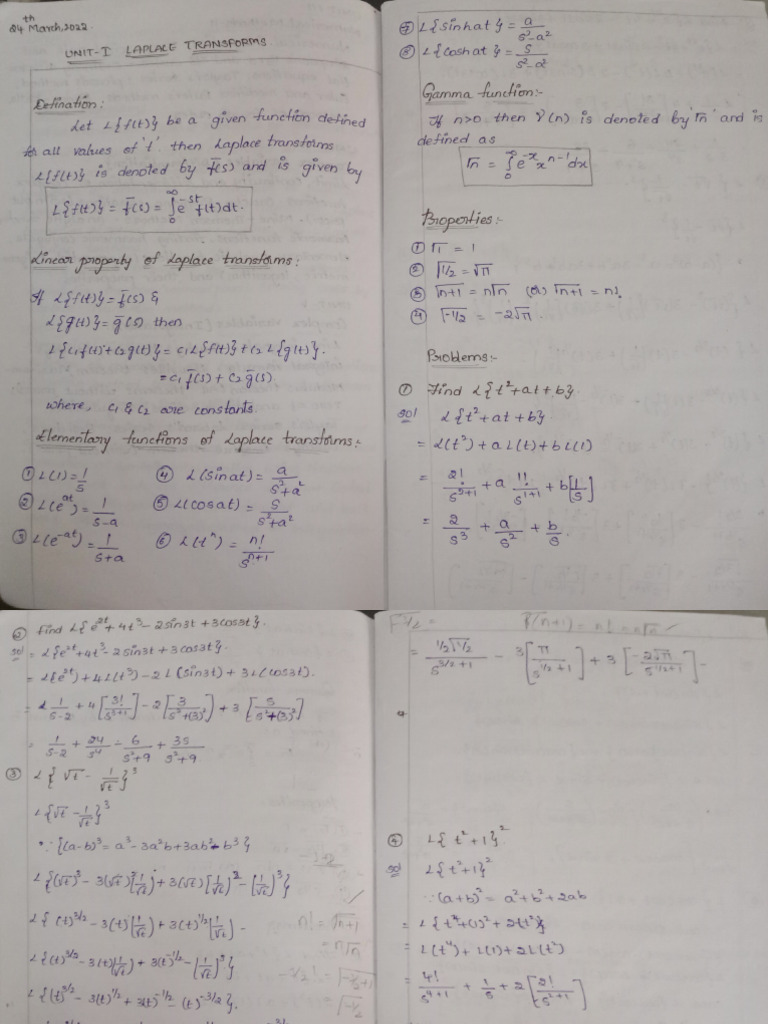 24th March, 2022.
UNIT-I LAPLACE TRANSFORMS
Defination:
Let L{f(t)} be a given function defined
for all values of 't' then Laplace transforms
L{f(t)} is denoted by f̄(s) and is given by
L{f(t)} = f̄(s) = ∫₀^∞ e^-st f(t)dt.
Linear property of Laplace transforms:
If L{f(t)} = f̄(s) &
L{g(t)} = ḡ(s) then
L{c₁f(t)+c₂g(t)} = c₁L{f(t)}+c₂ L{g(t)}.
= c₁ f̄(s) + c₂ ḡ(s).
where, c₁ & c₂ are constants.
Elementary functions of Laplace transforms:-
① L(1) = 1/s
② L(e^at) = 1/(s-a)
③ L(e^-at) = 1/(s+a)
④ L(sinat) = a/(s²+a²)
⑤ L(cosat) = s/(s²+a²)
⑥ L(tⁿ) = n!/s^(n+1)
⑦ L{sinhat} = a/(s²-a²)
⑧ L{coshat} = s/(s²-a²)
Gamma function:-
If n>0 then γ(n) is denoted by 'Γn' and is
defined as
Γn = ∫₀^∞ e^-x x^(n-1) dx
Properties:-
① Γ1 = 1
② Γ1/2 = √π
③ Γn+1 = nΓn (or) Γn+1 = n!
④ Γ-1/2 = -2√π
Problems:-
① Find L{t²+at+b}
sol L{t²+at+b}
= L(t²)+a L(t)+b L(1)
= 2!/s^(2+1) + a 1!/s^(1+1) + b[1/s]
= 2/s³ + a/s² + b/s.
② Find L{e^2t + 4t³ - 2sin3t + 3cos3t}.
sol = L{e^2t+4t³-2sin3t+3cos3t}
= L(e^2t)+4L(t³)-2L(sin3t)+3L(cos3t).
= 1/(s-2) + 4[3!/s^(3+1)] - 2[3/(s²+(3)²)] + 3[s/(s²+(3)²)]
= 1/(s-2) + 24/s⁴ - 6/(s²+9) + 3s/(s²+9)
③ L{√t - 1/√t}³
L{√t - 1/√t}³
∵ {(a-b)³ = a³-3a²b+3ab²-b³}
L{(√t)³ - 3(√t)²[1/√t] + 3(√t)[1/√t]² - [1/√t]³}
L{(t)^3/2 - 3(t)[1/√t] + 3(t)^1/2[1/√t] -
L{(t)^3/2 - 3(t)[1/√t] + 3(t)^-1/2 - [1/√t]³}
L{(t)^3/2 - 3(t)^1/2 + 3(t)^-1/2 - (t)^-3/2}.
n! = Γn+1
= nΓn
-1/2! = Γ-1/2+1
γ(n+1) = n! = nΓn
= 1/2Γ1/2/s^(3/2+1) - 3[π/s^(1/2+1)] + 3[-2√π/s^(1/2+1)] -
④ L{t²+1}²
sol L{t²+1}²
∵ (a+b)² = a²+b²+2ab
= L{t⁴+(1)²+2t²}
= L(t⁴)+L(1)+2L(t²)
= 4!/s^(4+1) + 1/s + 2[2!/s^(2+1)]